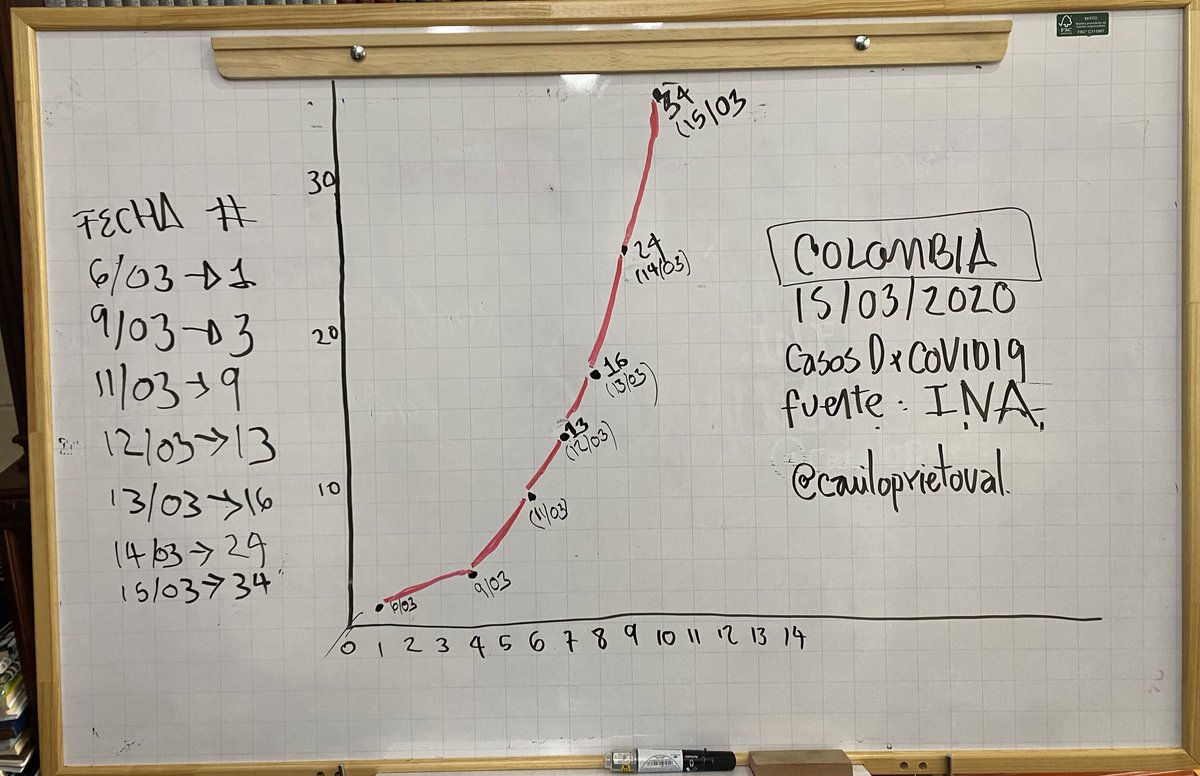 FECHA #
6/03 → 1
9/03 → 3
11/03 → 9
12/03 → 13
13/03 → 16
14/03 → 24
15/03 → 34
34
(15/03
30
24
(14/03)
20
16
(13/03)
13
(12/03)
10
(11/03)
9/03
6/03
0 1 2 3 4 5 6 7 8 9 10 11 12 13 14
COLOMBIA
15/03/2020
Casos Dx COVID19
fuente: I.N.A.
@camiloprietoval.
MIXTO
FSC